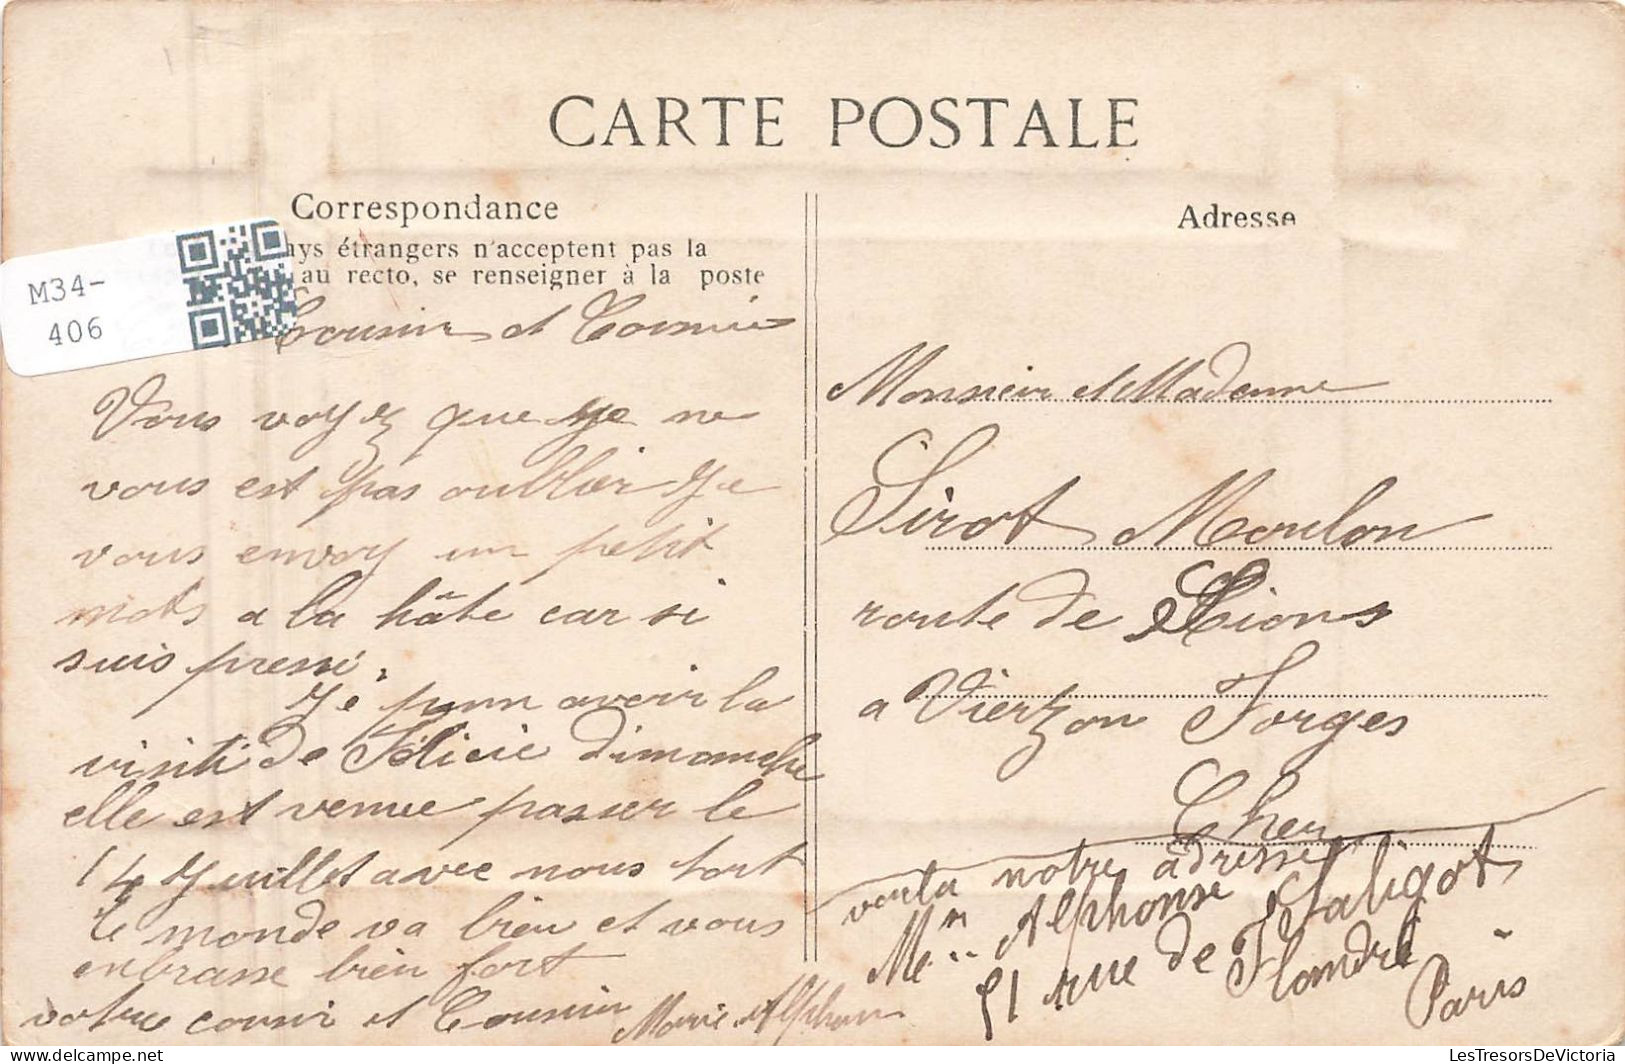 CARTE POSTALE
Correspondance
ays étrangers n'acceptent pas la
au recto, se renseigner à la poste
M34-
406
Cousin et Cousine
Vous voyez que je ne
vous est pas oublier je
vous envoy un petit
mots a la hâte car si
suis pressé.
avoir la
visiti de Félicie dimanche
elle est venue passer le
14 Juillet avec nous tout
le monde va bien et vous
enbrasse bien fort
votre cousin et Cousine Marie Alphonse
Adresse
Monsieur et Madame
Sirot Moulon
route de
a Vierzon Forges
Cher
notre adresse
Mr Me Alphonse Galigot
51 rue de Flandre
Paris
delcampe.net
LesTresorsDeVictoria